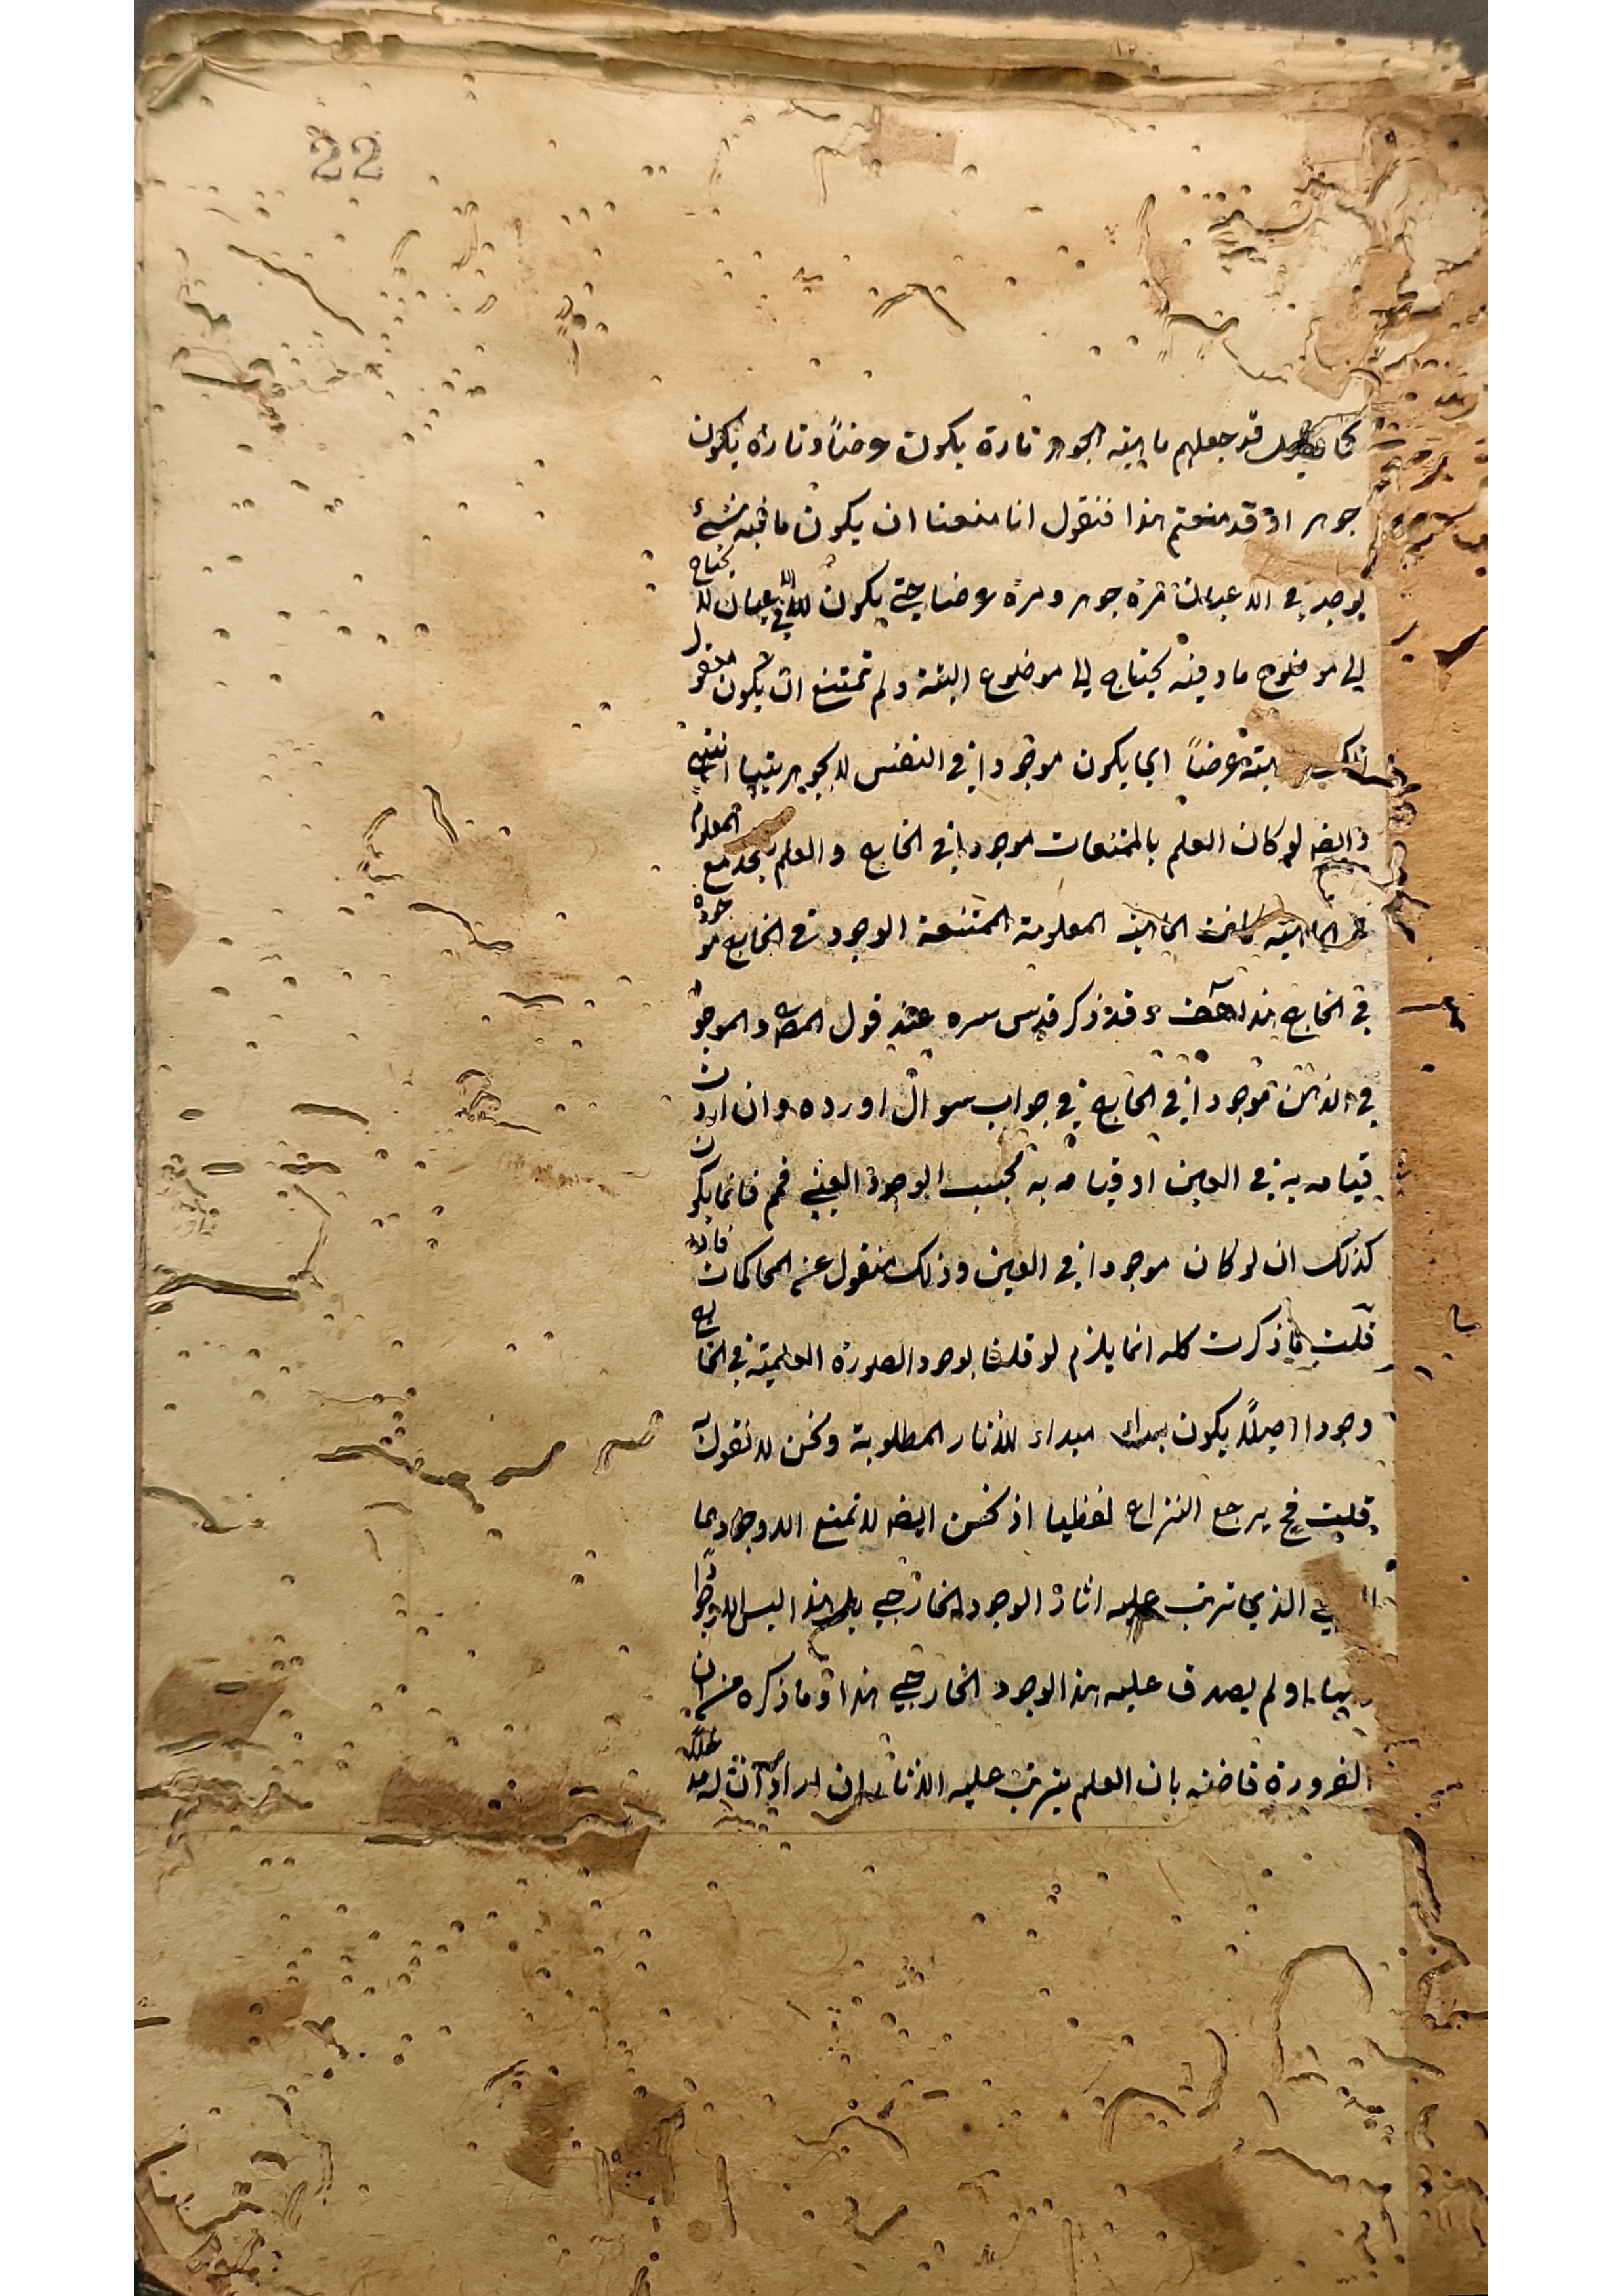 22
قد جعلهم ماهيته الجوهر تارة يكون عرضاً وتارة يكون
جوهرا وقد منعتم هذا فنقول انا منعنا ان يكون ماهية شئ
يوجد في الاعيان مرة جوهر ومرة عرضا حتى يكون في الاعيان لا يحتاج
الى موضوع ما وفيه يحتاج الى موضوع البتة ولم تمتنع ان يكون معقول
عرضاً اي يكون موجودا في النفس لا بجوهريتها انتهى
وايضه لو كان العلم بالممتنعات موجودا في الخارج والعلم يتحد مع المعلوم
الماهية المعلومة الممتنعة الوجود في الخارج موجودة
في الخارج هذا خلف وقد ذكر قدس سره عند قول المص والموجود
في الذهن موجودا في الخارج في جواب سوال اورده وان اردت
قيامه به في العين او قيامه به بحسب الوجود العيني فمم فانما يكون
كذلك ان لو كان موجودا في العين وذلك منقول عن المحاكمات فان
قلت ما ذكرت كله انما يلزم لو قلنا بوجود الصورة العلمية في الخارج
وجودا اصيلاً يكون مبداء للاثار المطلوبة ونحن لا نقول
قلت فح يرجع النزاع لفظيا اذ نحن ايضه لا نمنع الا وجودها
الذي ترتب عليه اثار الوجود الخارجي بل هذا ليس الا وجودا
ولم يصدق عليه هذا الوجود الخارجي هذا وما ذكره من ان
الضرورة قاضيه بان العلم يترتب عليه الاثار ان اراد ان له